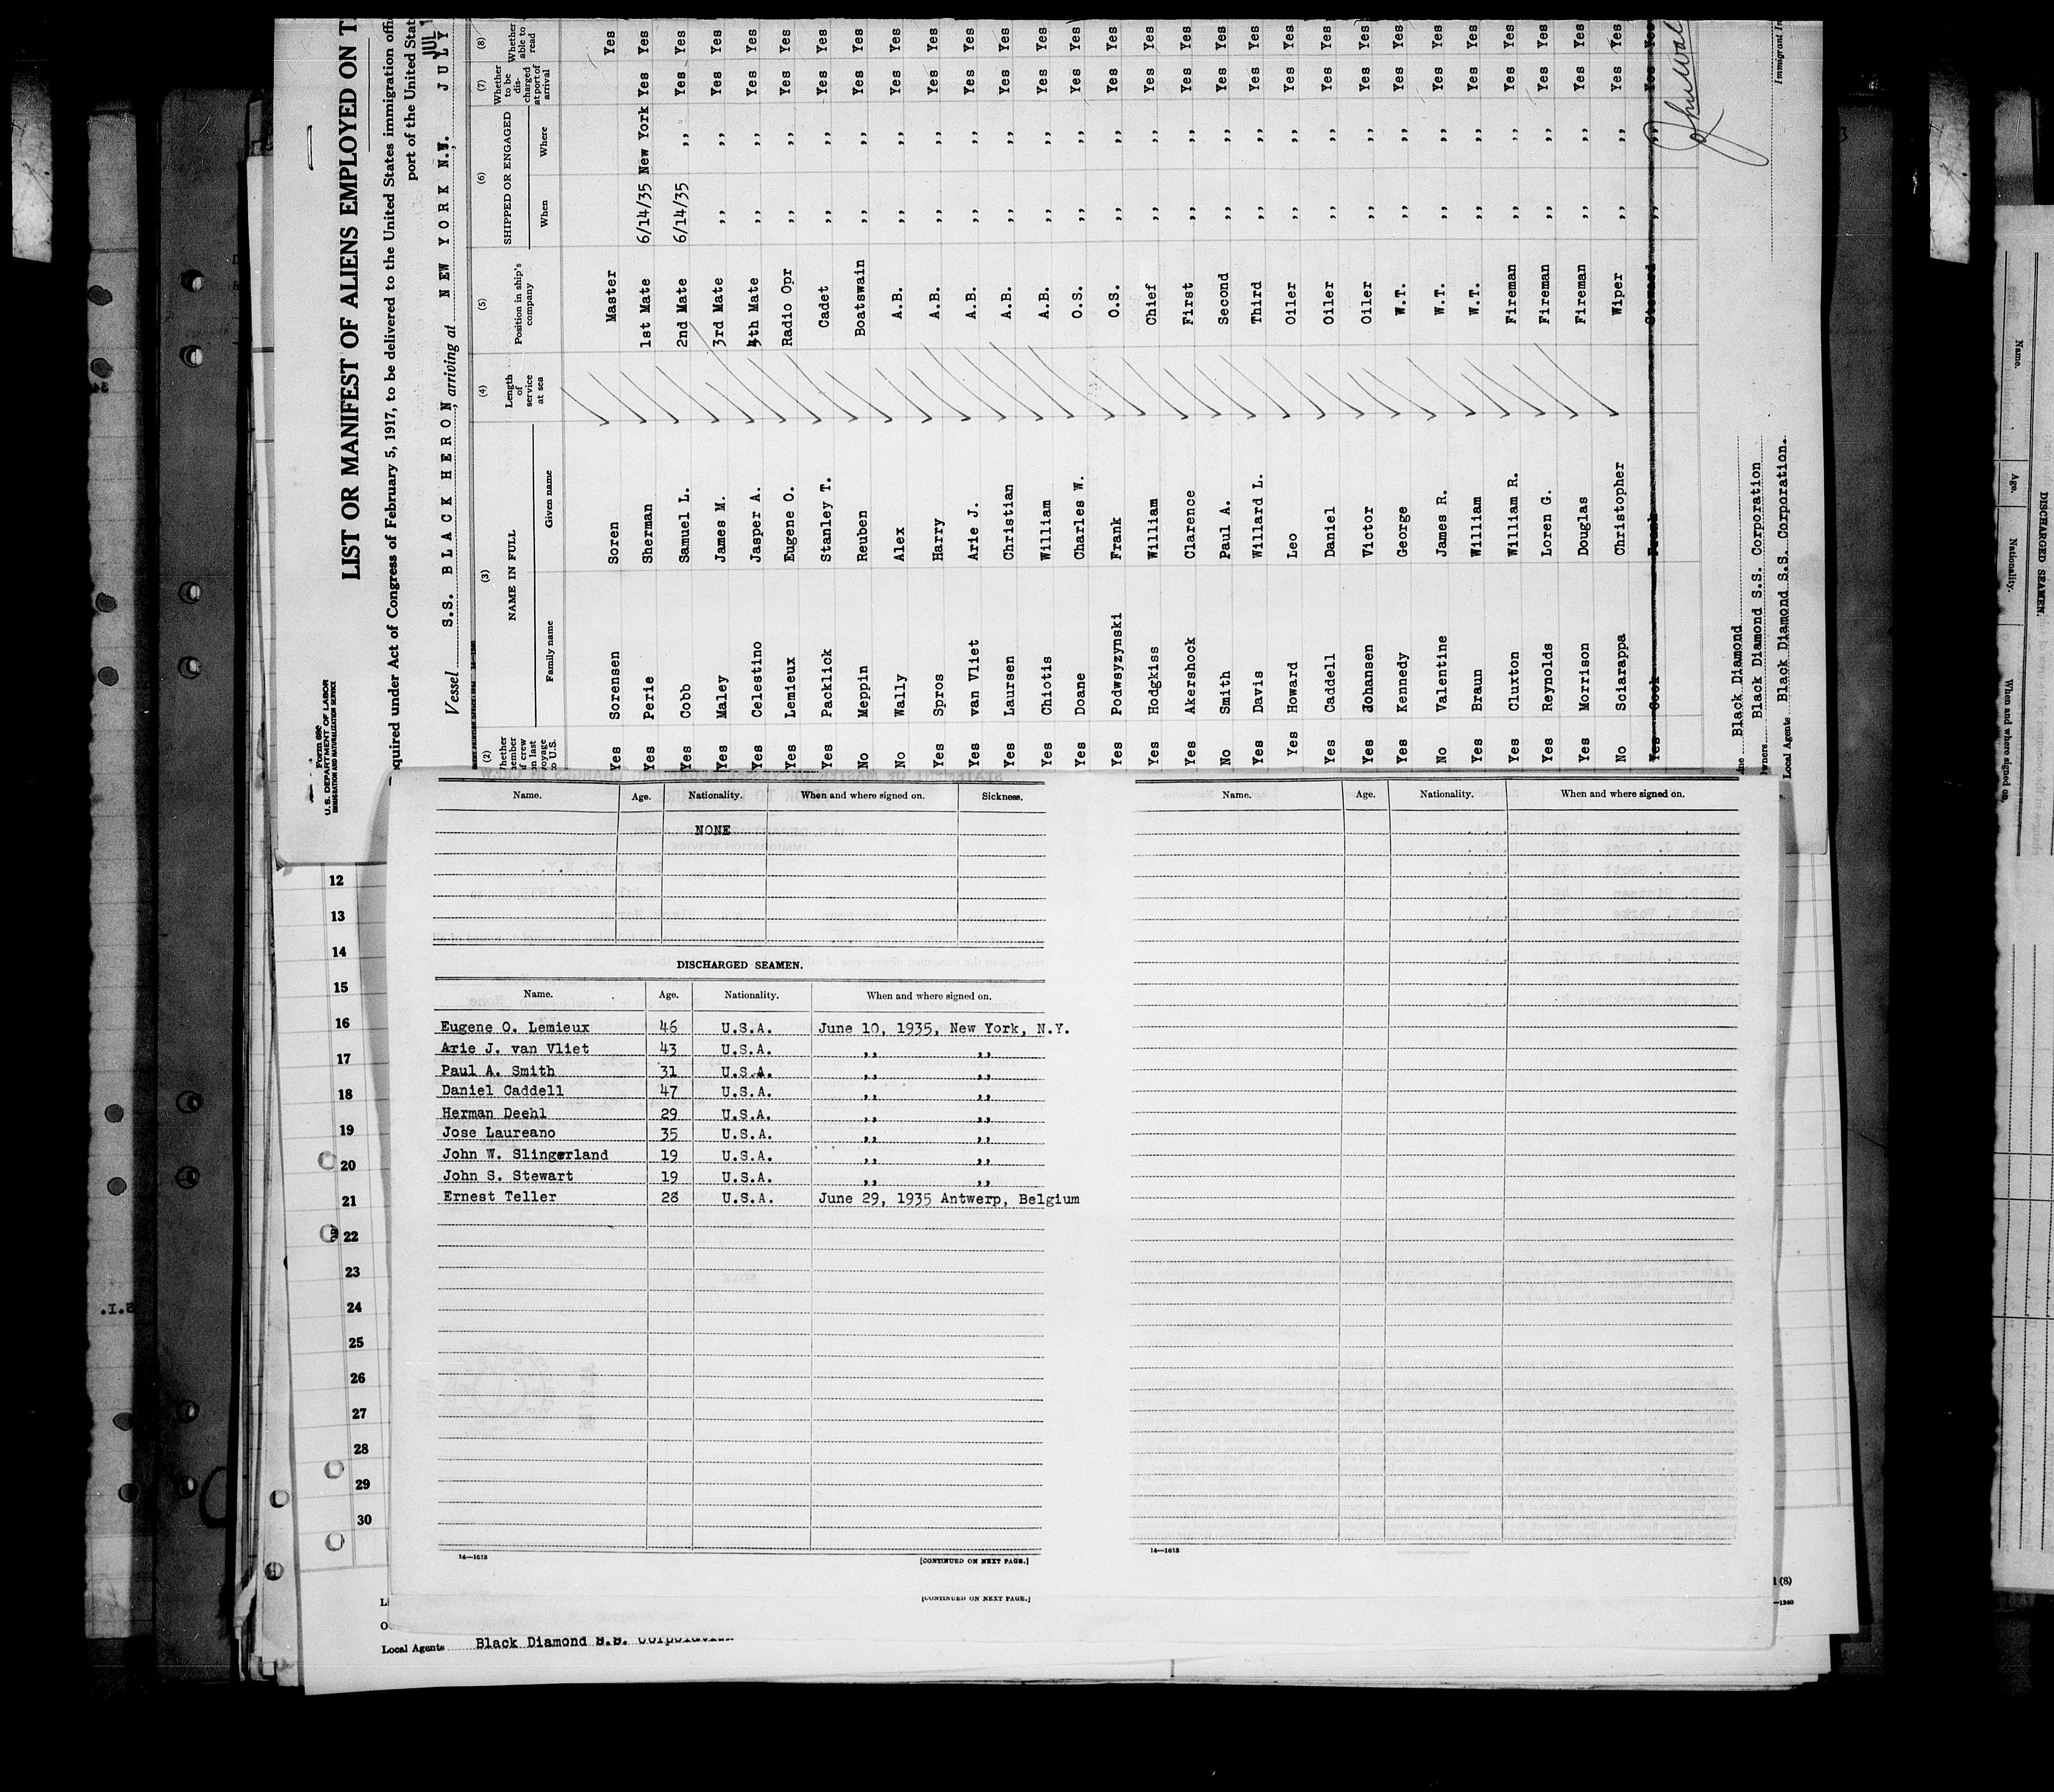 Form 680
U. S. DEPARTMENT OF LABOR
IMMIGRATION AND NATURALIZATION SERVICE
LIST OR MANIFEST OF ALIENS EMPLOYED ON T
equired under Act of Congress of February 5, 1917, to be delivered to the United States immigration offi
port of the United Stat
JUL
Vessel S.S. BLACK HERON, arriving at NEW YORK N.Y. JULY
(2) (3) (4) (5) (6) (7) (8)
NAME IN FULL
SHIPPED OR ENGAGED
hether member of crew on last voyage to U.S.
Family name
Given name
Length of service at sea
Position in ship's company
When
Where
Whether to be discharged at port of arrival
Whether able to read
Yes Sorensen Soren Master Yes
Yes Perie Sherman 1st Mate 6/14/35 New York Yes Yes
Yes Cobb Samuel L. 2nd Mate 6/14/35 ,, Yes Yes
Yes Maley James M. 3rd Mate ,, ,, Yes Yes
Yes Celestino Jasper A. 4th Mate ,, ,, Yes Yes
Yes Lemieux Eugene O. Radio Opr ,, ,, Yes Yes
Yes Packlick Stanley T. Cadet ,, ,, Yes Yes
No Meppin Reuben Boatswain ,, ,, Yes Yes
No Wally Alex A.B. ,, ,, Yes Yes
Yes Spros Harry A.B. ,, ,, Yes Yes
Yes van Vliet Arie J. A.B. ,, ,, Yes Yes
Yes Laursen Christian A.B. ,, ,, Yes Yes
Yes Chiotis William A.B. ,, ,, Yes Yes
Yes Doane Charles W. O.S. ,, ,, Yes Yes
Yes Podwsyzynski Frank O.S. ,, ,, Yes Yes
Yes Hodgkiss William Chief ,, ,, Yes Yes
Yes Akershock Clarence First ,, ,, Yes Yes
No Smith Paul A. Second ,, ,, Yes Yes
Yes Davis Willard L. Third ,, ,, Yes Yes
Yes Howard Leo Oiler ,, ,, Yes Yes
Yes Caddell Daniel Oiler ,, ,, Yes Yes
Yes Johansen Victor Oiler ,, ,, Yes Yes
Yes Kennedy George W.T. ,, ,, Yes Yes
No Valentine James R. W.T. ,, ,, Yes Yes
Yes Braun William W.T. ,, ,, Yes Yes
Yes Cluxton William R. Fireman ,, ,, Yes Yes
Yes Reynolds Loren G. Fireman ,, ,, Yes Yes
Yes Morrison Douglas Fireman ,, ,, Yes Yes
No Sciarappa Christopher Wiper ,, ,, Yes Yes
Yes Cook Frank Steward ,, ,, Yes Yes
ine Black Diamond
wners Black Diamond S.S. Corporation
Local Agents Black Diamond S.S. Corporation.
Immigrant In
Name. Age. Nationality. When and where signed on. Sickness.
NONE
DISCHARGED SEAMEN.
Name. Age. Nationality. When and where signed on.
Eugene O. Lemieux 46 U.S.A. June 10, 1935, New York, N.Y.
Arie J. van Vliet 43 U.S.A. ,, ,,
Paul A. Smith 31 U.S.A. ,, ,,
Daniel Caddell 47 U.S.A. ,, ,,
Herman Deehl 29 U.S.A. ,, ,,
Jose Laureano 35 U.S.A. ,, ,,
John W. Slingerland 19 U.S.A. ,, ,,
John S. Stewart 19 U.S.A. ,, ,,
Ernest Teller 28 U.S.A. June 29, 1935 Antwerp, Belgium
14—1613
[CONTINUED ON NEXT PAGE.]
[CONTINUED ON NEXT PAGE.]
Name. Age. Nationality. When and where signed on.
14—1613
12
13
14
15
16
17
18
19
20
21
22
23
24
25
26
27
28
29
30
Local Agents Black Diamond S.S. Corporation
(8)
—1240
DISCHARGED SEAMEN.
Name. Age. Nationality. When and where signed on.